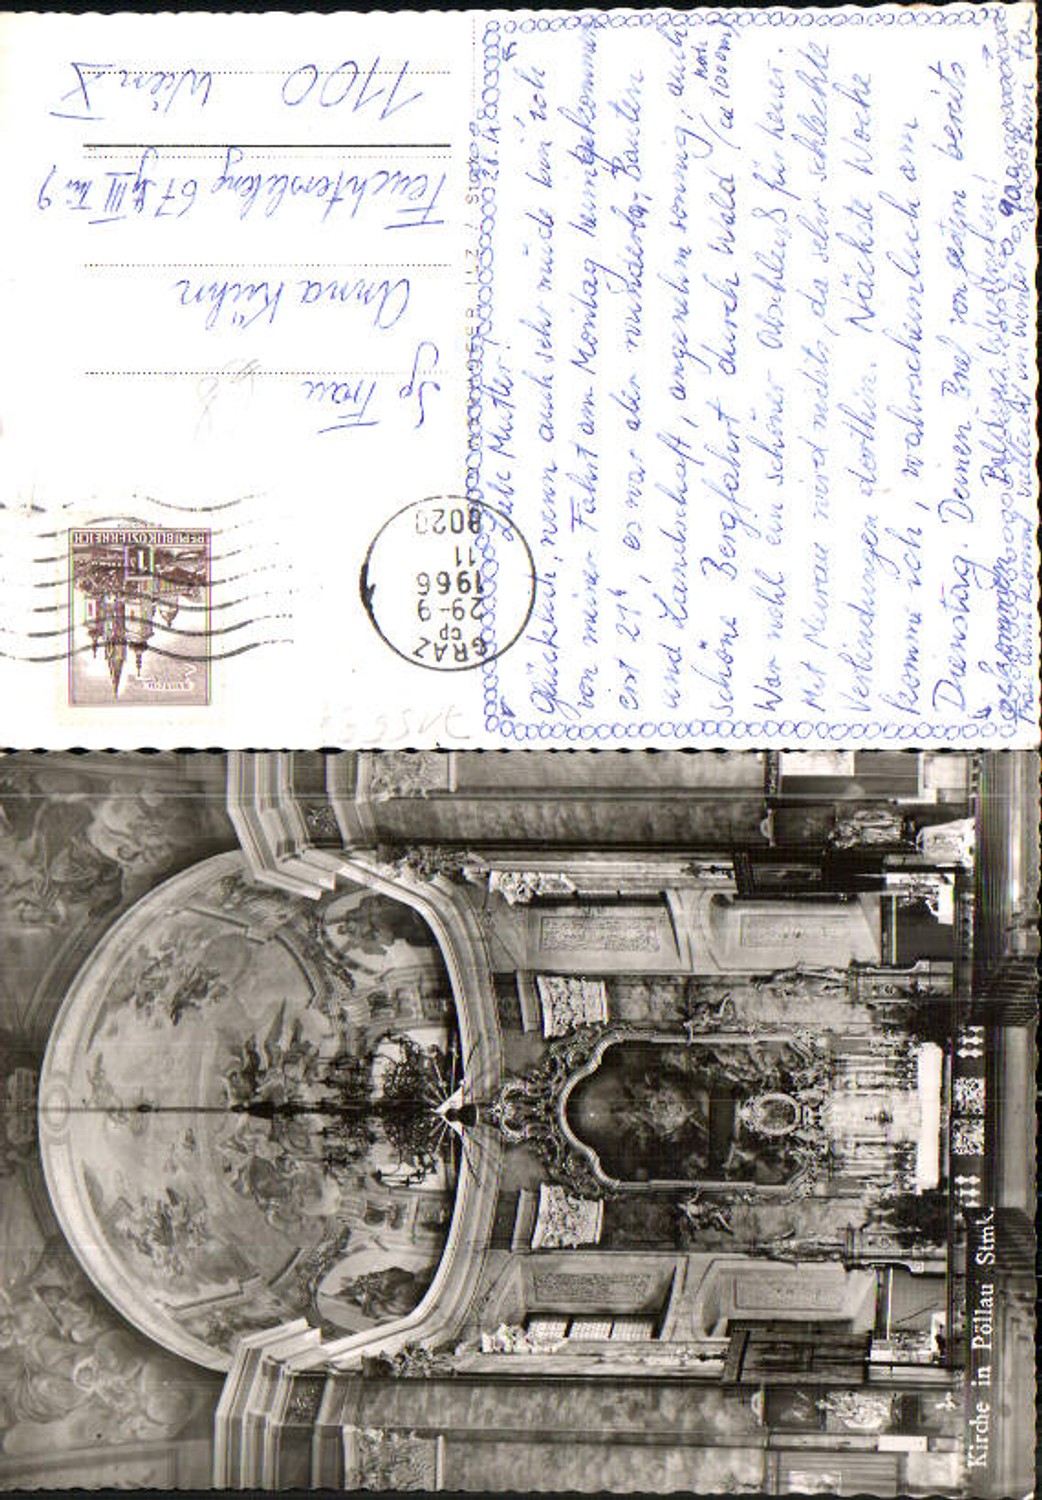 28. IX.
Liebe Mutter!
Glücklich, wenn auch sehr müde bin ich
von meiner Fahrt am Montag heimgekommen
erst 21h, es war aber wunderbar, Bauten
und Landschaft, angenehm sonnig, auch
schöne Bergfahrt durch Wald (ca 1000m)
War wohl ein schöner Abschluß für heuer.
Mit Murau wird nichts, da sehr schlechte
Verbindungen dorthin. Nächste Woche
komme ich, wahrscheinlich am
Dienstag. Deinen Brief von gestern bereits
Sg Frau
Anna Kühn
67 III 9
1100 Wien X
REPUBLIK ÖSTERREICH
1
GRAZ
29-9
1966
11
8020
Kirche in Pöllau Stmk.